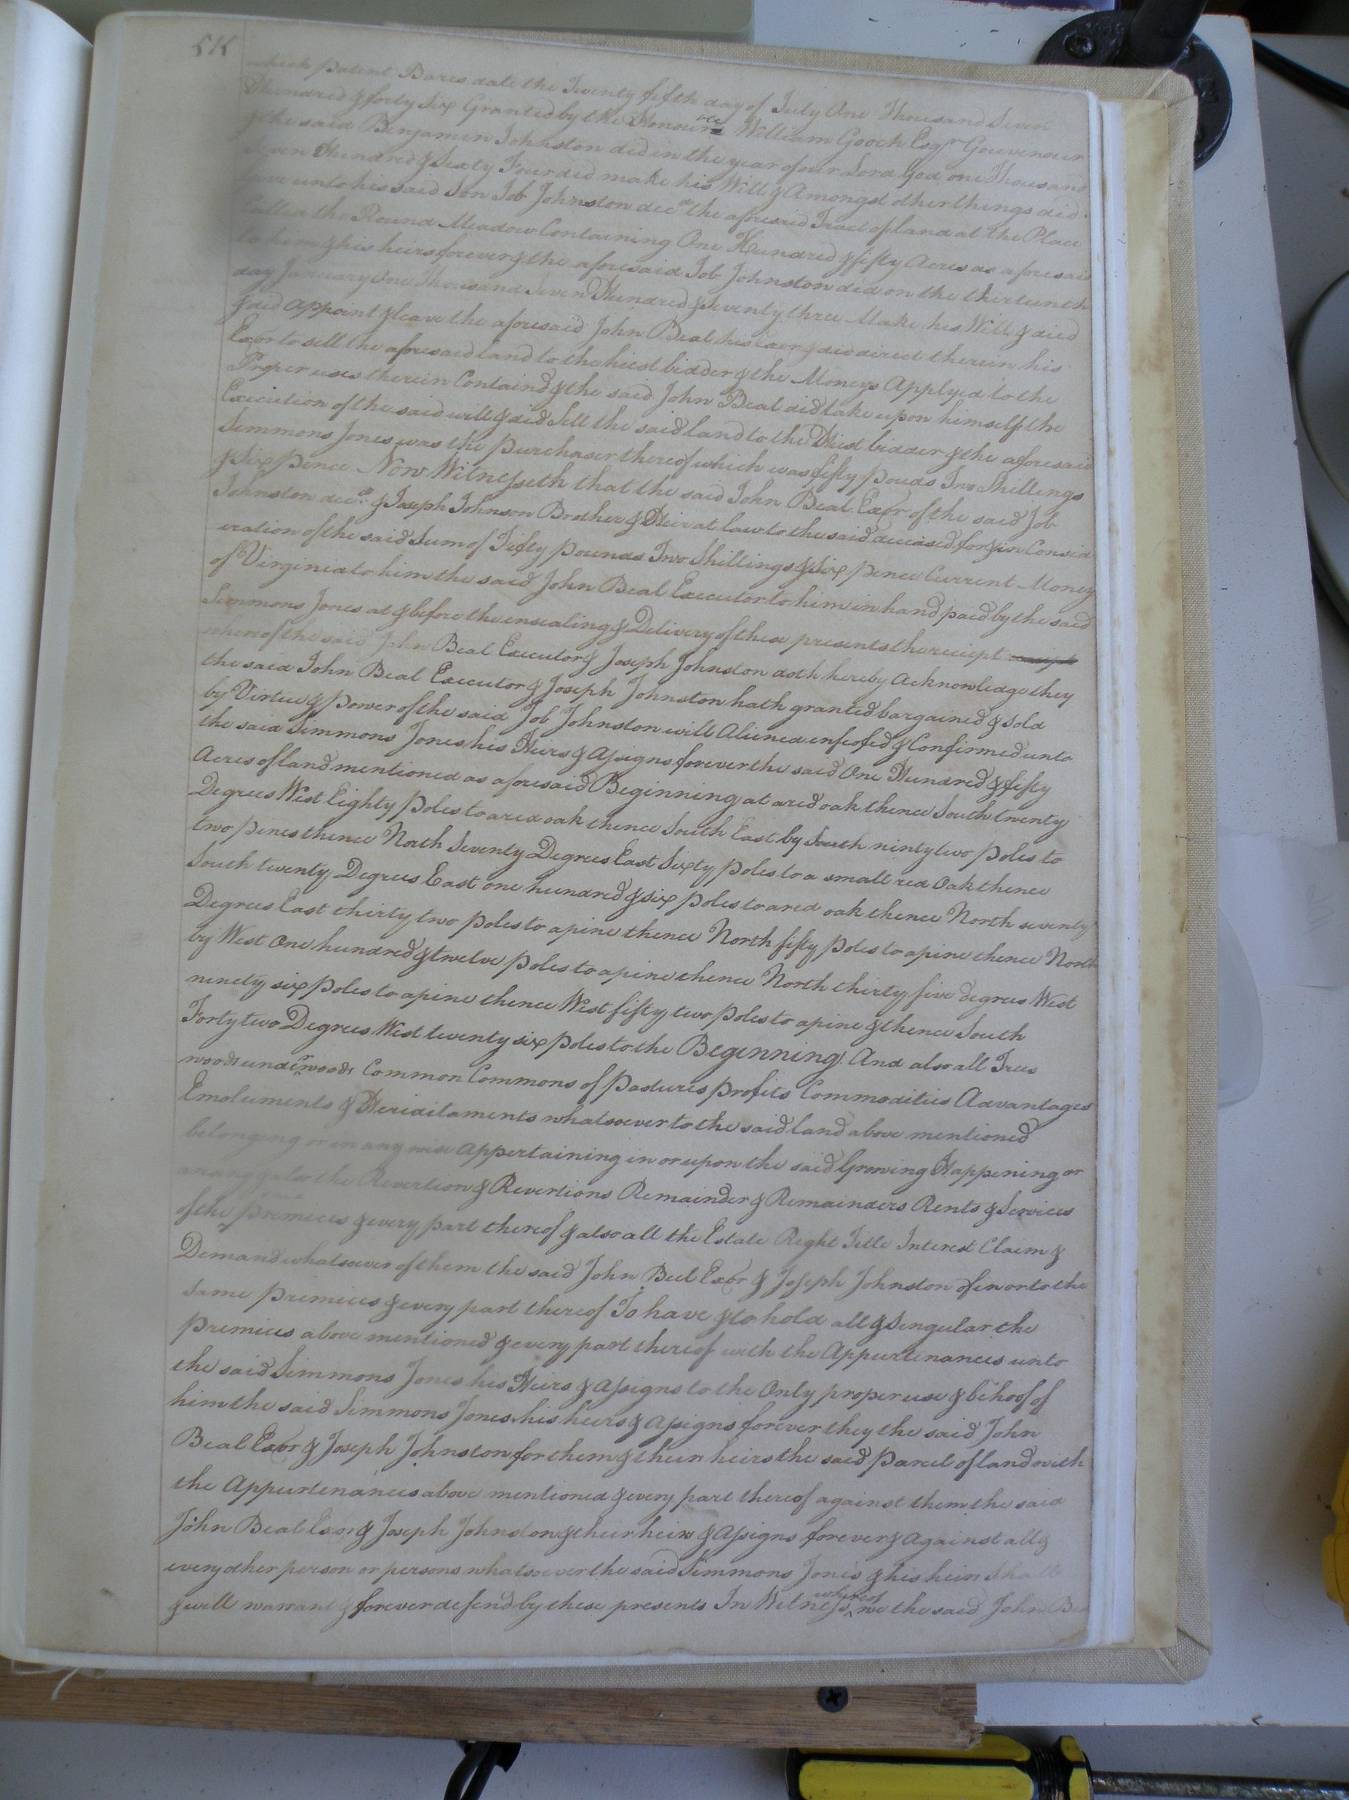 which patent Bares date the Twenty fifth day of July One Thousand Seven
Hundred & forty Six Granted by the Honour^ble William Gooch Esq^r Gouvenour
& the said Benjamin Johnston did in the year of our Lord God one Thousand
Seven Hundred & Sixty Four did make his Will & Amongst other things did
Give unto his said Son Job Johnston dec^d the aforesaid Tract of land at the Place
Called the Round Meadow Containing One Hundred & fifty Acres as aforesaid
to him & his heirs forever & the aforesaid Job Johnston did on the thirteenth
day January One Thousand Seven Hundred & Seventy three Make his Will & died
& did Appoint & leave the aforesaid John Beal his Exer & did direct therein his
Exor to sell the aforesaid land to the hiest bidder & the Moneys Applyed to the
Proper uses therein Containd & the said John Beal did take upon himself the
Execution of the said will & did Sell the said land to the Hiest bidder & the aforesaid
Simmons Jones was the purchaser thereof which was fifty pouds Two Shillings
& Six pence Now Witnesseth that the said John Beal Exor of the said Job
Johnston dec^d & Joseph Johnson Brother & Heir at law to the said deceased for & in Consid
eration of the said Sum of Fifty pounds Two Shillings & Six pence Current Money
of Virginia to him the said John Beal Executor to him in hand paid by the said
Simmons Jones at & before the ensealing & Delivery of these presents the receipt
whereof the said John Beal Executor & Joseph Johnston doth hereby Acknowledge they
the said John Beal Executor & Joseph Johnston hath granted bargained & sold
by Virtue & power of the said Job Johnston will Aliened enfeofed & Confirmed unto
the said Simmons Jones his Heirs & Assigns forever the said One Hundred & fifty
Acres of land mentioned as aforesaid Beginning at a red oak thence South twenty
Degrees West Eighty poles to a red oak thence South East by South ninety two poles to
two pines thence North Seventy Degrees East Sixty poles to a small red Oak thence
South twenty Degrees East one hundred & six poles to a red oak thence North seventy
Degrees East thirty two poles to a pine thence North fifty poles to a pine thence North
by West One hundred & twelve poles to a pine thence North thirty five degrees West
ninety six poles to a pine thence West fifty two poles to a pine & thence South
Forty two Degrees West twenty six poles to the Beginning And also all Trees
woods underwoods Common Commons of pastures profits Commodities Advantages
Emoluments & Heriditaments whatsoever to the said land above mentioned
belonging or in any wise Appertaining in or upon the said Growing Happening or
the Revertion & Revertions Remainder & Remainders Rents & Services
of the premices & every part thereof & also all the Estate Right Title Interest Claim &
Demand whatsoever of them the said John Beel Exor & Joseph Johnston of in or to the
same premices & every part thereof To have & to hold all & Singular the
premices above mentioned & every part thereof with the Appurtenances unto
the said Simmons Jones his Heirs & Assigns to the Only proper use & behoof of
him the said Simmons Jones his heirs & Assigns forever they the said John
Beal Exor & Joseph Johnston for them & their heirs the said parcel of land with
the Appurtenances above mentioned & every part thereof against them the said
John Beal Exor & Joseph Johnston & their heirs & Assigns forever & Against all &
every other person or persons whatsoever the said Simmons Jones & his heirs Shall
& will warrant & forever defend by these presents In Witness whereof we the said John